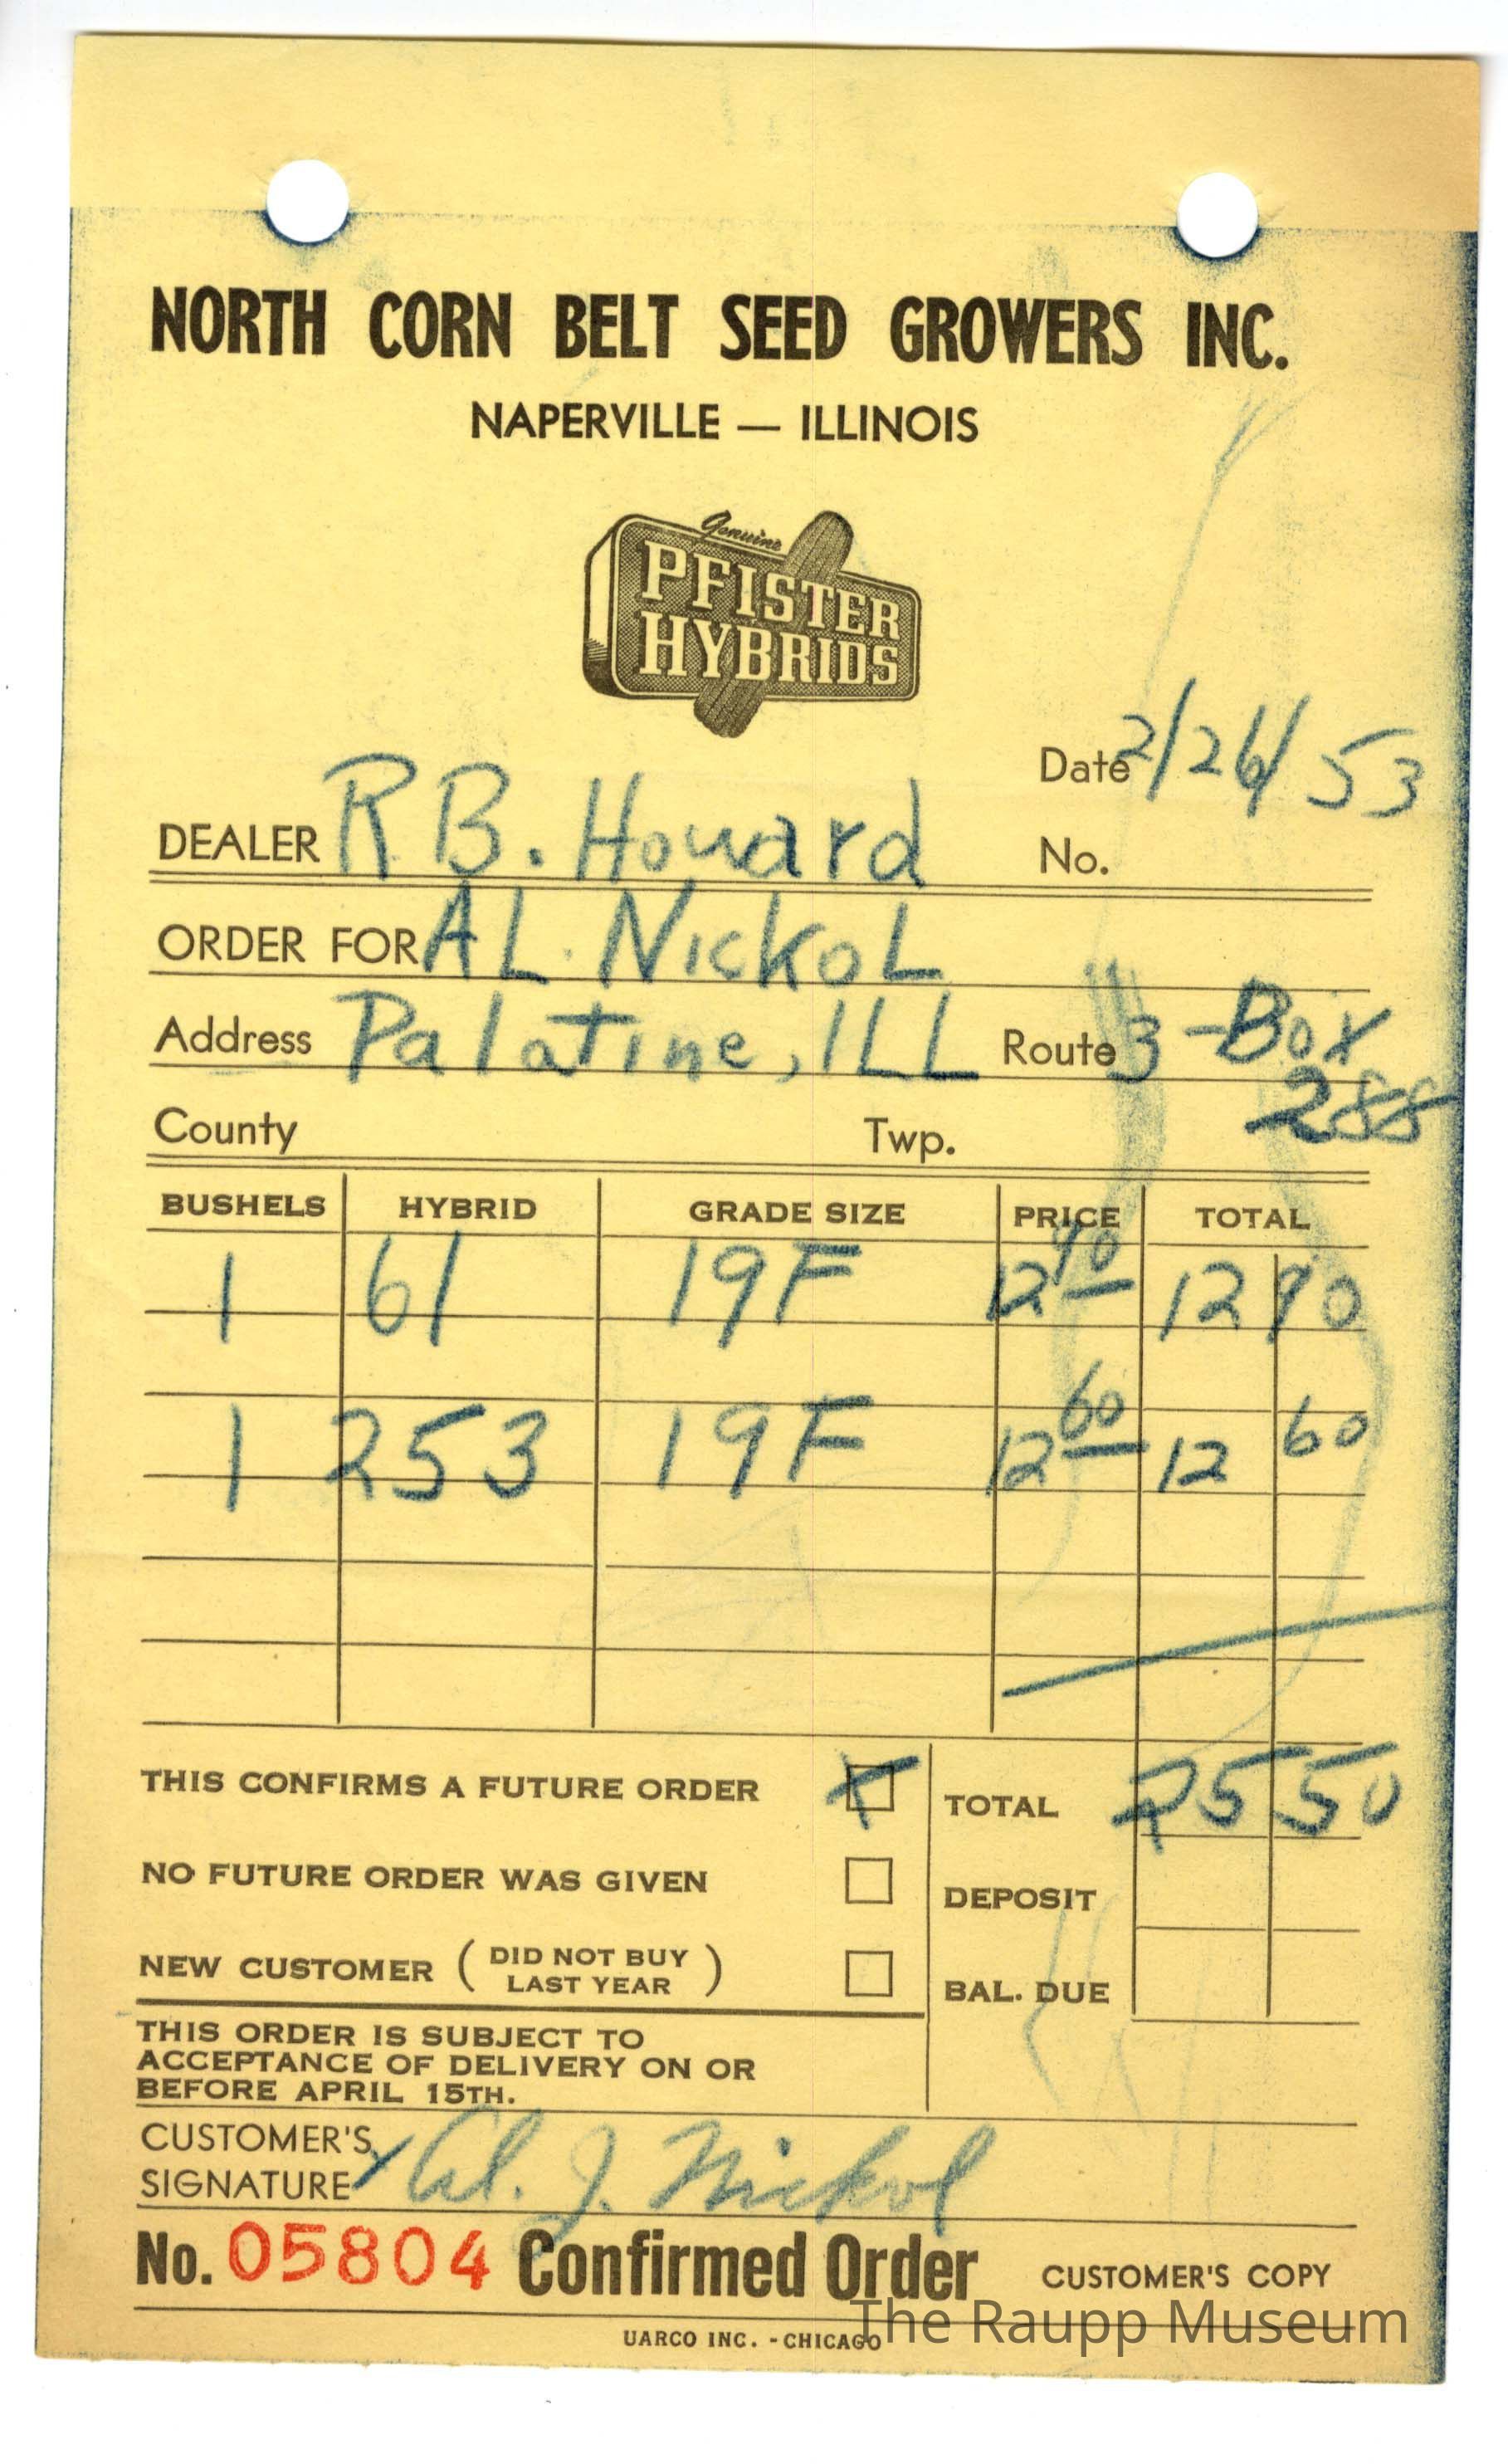 NORTH CORN BELT SEED GROWERS INC.
NAPERVILLE — ILLINOIS
Genuine
PFISTER
HYBRIDS
Date 2/26/53
DEALER R B. Howard No.
ORDER FOR AL. NickoL
Address Palatine, ILL Route 3 - Box
288
County Twp.
BUSHELS HYBRID GRADE SIZE PRICE TOTAL
1 61 19F 12 90 12 90
1 253 19F 12 60 12 60
THIS CONFIRMS A FUTURE ORDER X TOTAL 25 50
NO FUTURE ORDER WAS GIVEN DEPOSIT
NEW CUSTOMER ( DID NOT BUY LAST YEAR ) BAL. DUE
THIS ORDER IS SUBJECT TO
ACCEPTANCE OF DELIVERY ON OR
BEFORE APRIL 15TH.
CUSTOMER'S
SIGNATURE x Al. J. Nickol
No. 05804 Confirmed Order CUSTOMER'S COPY
UARCO INC. - CHICAGO
The Raupp Museum